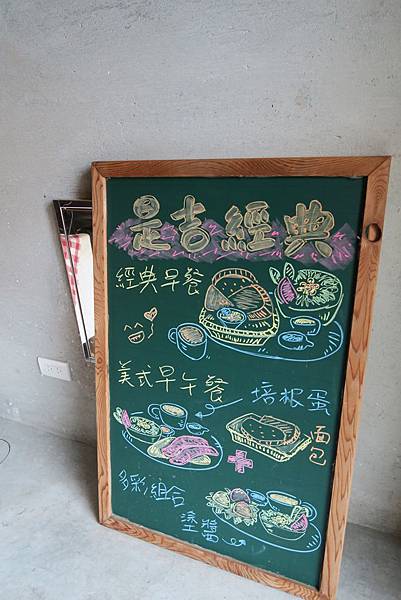 是吉經典
經典早餐
美式早午餐
培根蛋
麵包
多彩組合
塗醬